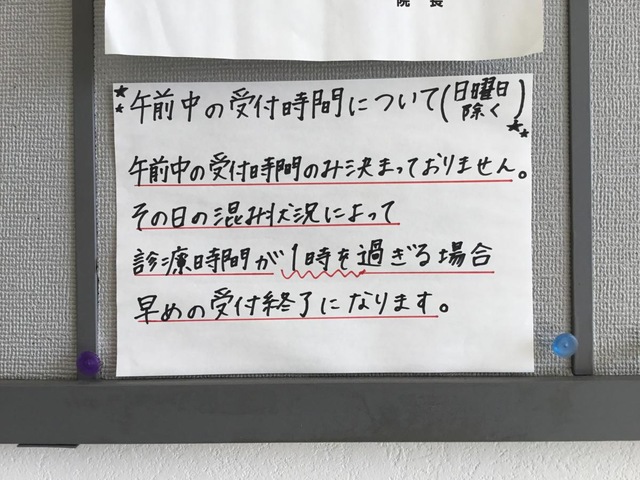 院長
★★午前中の受付時間について(日曜日除く)★★
午前中の受付時間のみ決まっておりません。
その日の混み状況によって
診療時間が1時を過ぎる場合
早めの受付終了になります。